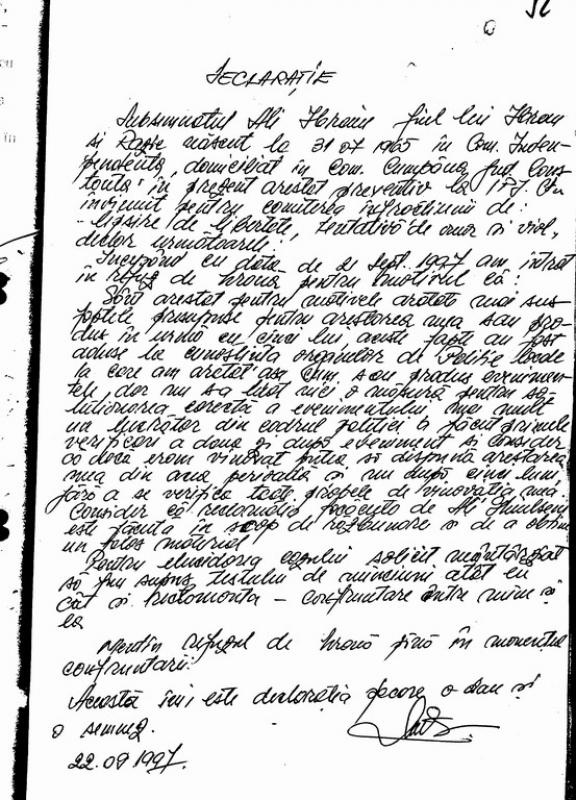 52
DECLARAȚIE
Subsemnatul Ali Ibraim fiul lui Ibram
si Razie născut la 31 07 1965 în Com. Inden-
pendența, domiciliat în Com. Cumpăna Jud. Cons-
tanța în prezent arestat preventiv la
învinuit pentru comiterea infracțiunii de:
lipsire de libertate, tentativă de omor si viol,
declar următoarele:
Începând cu data de 21 Sept. 1997 am intrat
în refuz de hrană pentru motivul că:
Sunt arestat pentru motivele arătate mai sus
faptele presupuse pentru arestarea mea sau pro-
dus în urmă cu cinci luni, aceste fapte au fost
aduse la cunoștința organelor de Poliție locale
la care am arătat așa cum sau produs evenimen-
tele, dar nu sa luat nici o măsură pentru so-
luționarea corectă a evenimentului, mai mult
un lucrător din cadrul poliției a făcut primele
verificări a doua zi după eveniment si consider
că dacă eram vinovat putea să dispună arestarea
mea din acea perioadă si nu după cinci luni,
fără a se verifica toate probele de vinovăția mea.
Consider că reclamația făcută de Ali
este făcută în scop de răzbunare si de a obține
un folos material
Pentru elucidarea cazului solicit neîntârziat
să fiu supus testului de minciuni atât eu
cât si reclamanta – confruntare între mine si
ea
Mențin refuzul de hrană până în momentul
confruntării.
Aceasta îmi este declarația pe care o dau si
o semnez.
22.09 1997.